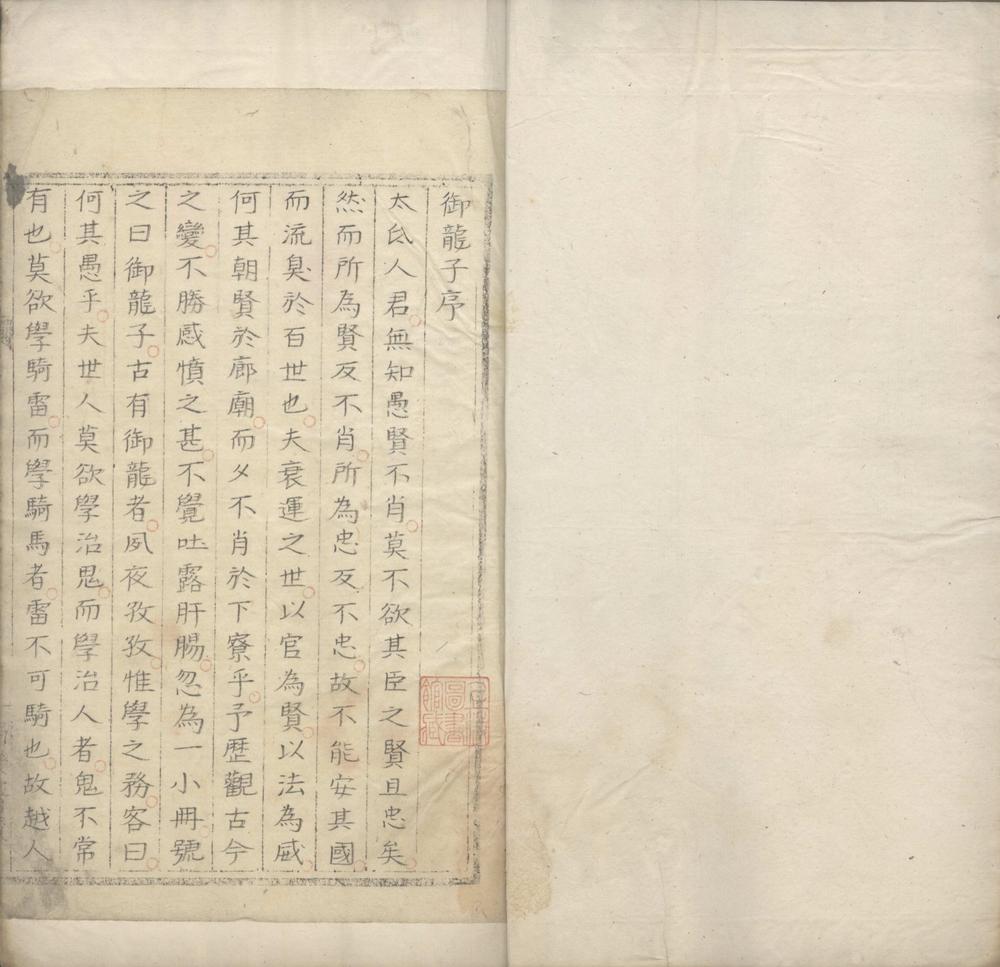 御龍子序
太氐人君無知愚賢不肖莫不欲其臣之賢且忠矣
然而所為賢反不肖所為忠反不忠故不能安其國
而流臭於百世也夫衰運之世以官為賢以法為威
何其朝賢於廊廟而夕不肖於下寮乎予歴觀古今
之變不勝感憤之甚不覺吐露肝腸忽為一小冊號
之曰御龍子古有御龍者夙夜孜孜惟學之務客曰
何其愚乎夫世人莫欲學治鬼而學治人者鬼不常
有也莫欲學騎雷而學騎馬者雷不可騎也故越人